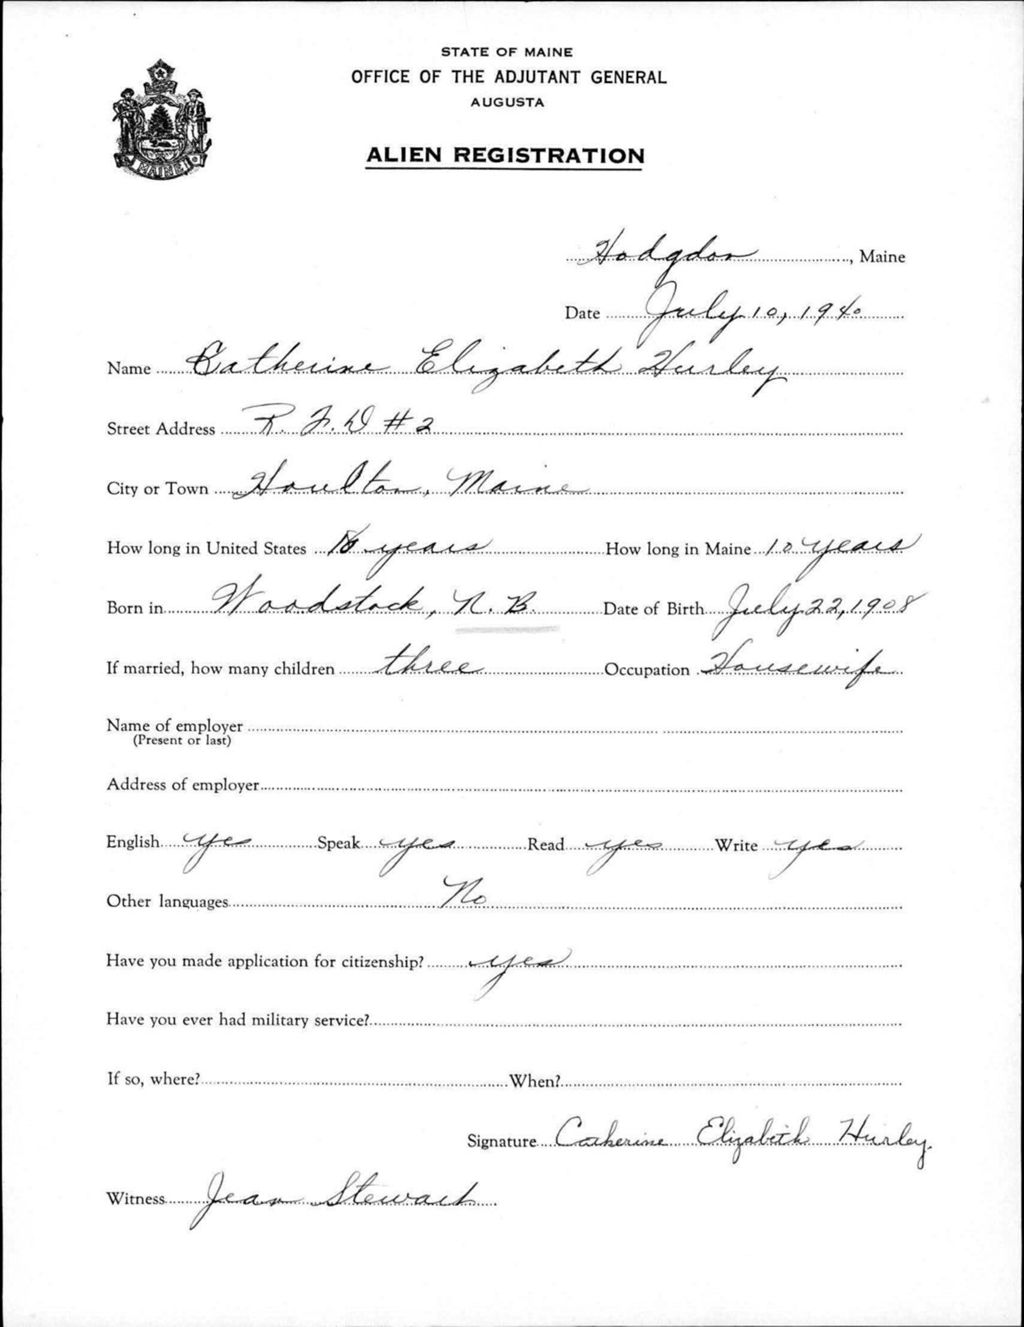 STATE OF MAINE
OFFICE OF THE ADJUTANT GENERAL
AUGUSTA
ALIEN REGISTRATION
MAINE
Hodgdon, Maine
Date July 10, 1940
Name Catherine Elizabeth Hurley
Street Address R. F. D #2
City or Town Houlton, Maine
How long in United States years How long in Maine 10 years
Born in Woodstock, N. B. Date of Birth July 22, 1908
If married, how many children three Occupation Housewife
Name of employer
(Present or last)
Address of employer
English yes Speak yes Read yes Write yes
Other languages No
Have you made application for citizenship? yes
Have you ever had military service?
If so, where? When?
Signature Catherine Elizabeth Hurley
Witness Jean Stewart